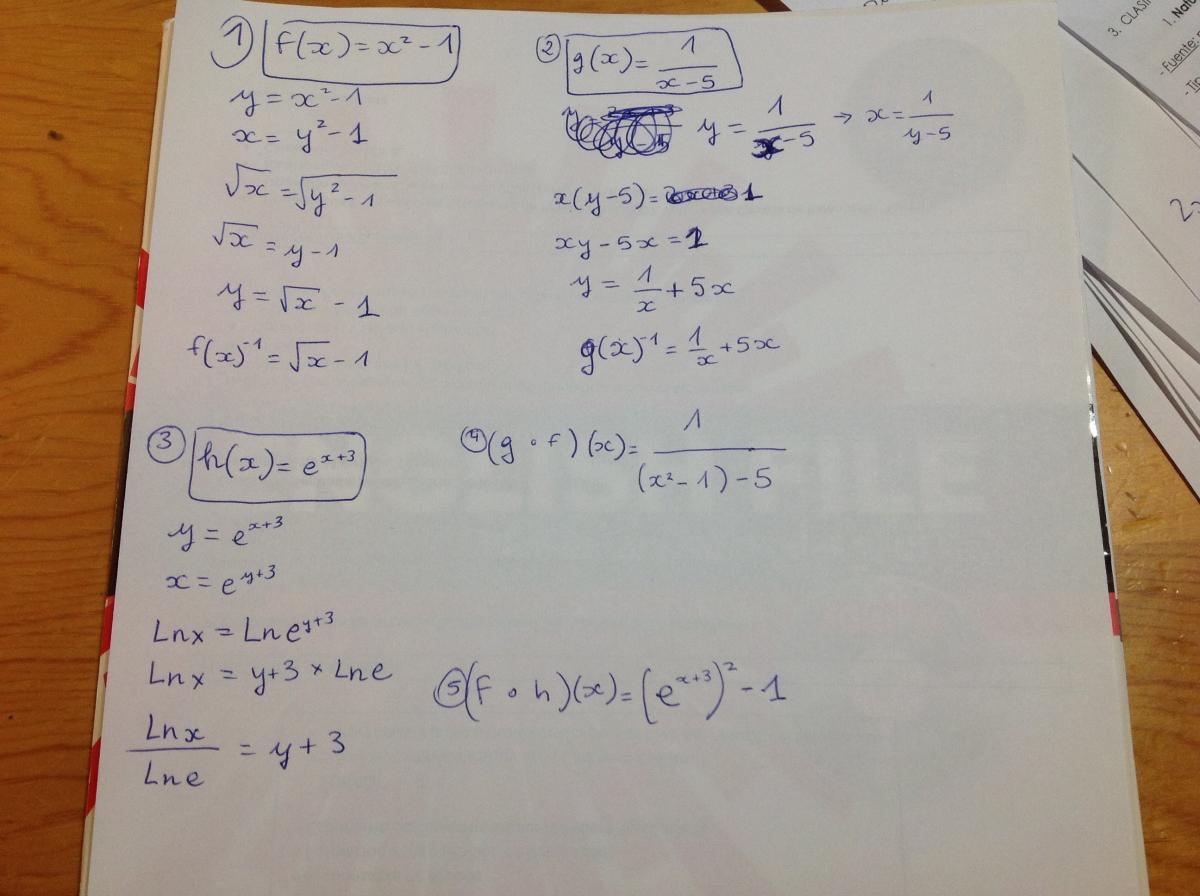 1) f(x) = x² - 1
y = x² - 1
x = y² - 1
√x = √y² - 1
√x = y - 1
y = √x - 1
f(x)⁻¹ = √x - 1
2) g(x) = 1/(x-5)
y = 1/(x-5) → x = 1/(y-5)
x(y-5) = 1
xy - 5x = 1
y = 1/x + 5x
g(x)⁻¹ = 1/x + 5x
3) h(x) = e^(x+3)
y = e^(x+3)
x = e^(y+3)
Lnx = Lne^(y+3)
Lnx = y+3 × Lne
Lnx/Lne = y + 3
4) (g ∘ f)(x) = 1/((x² - 1) - 5)
5) (f ∘ h)(x) = (e^(x+3))² - 1
3. CLASI
1. Natu
- Fuente:
- Tip